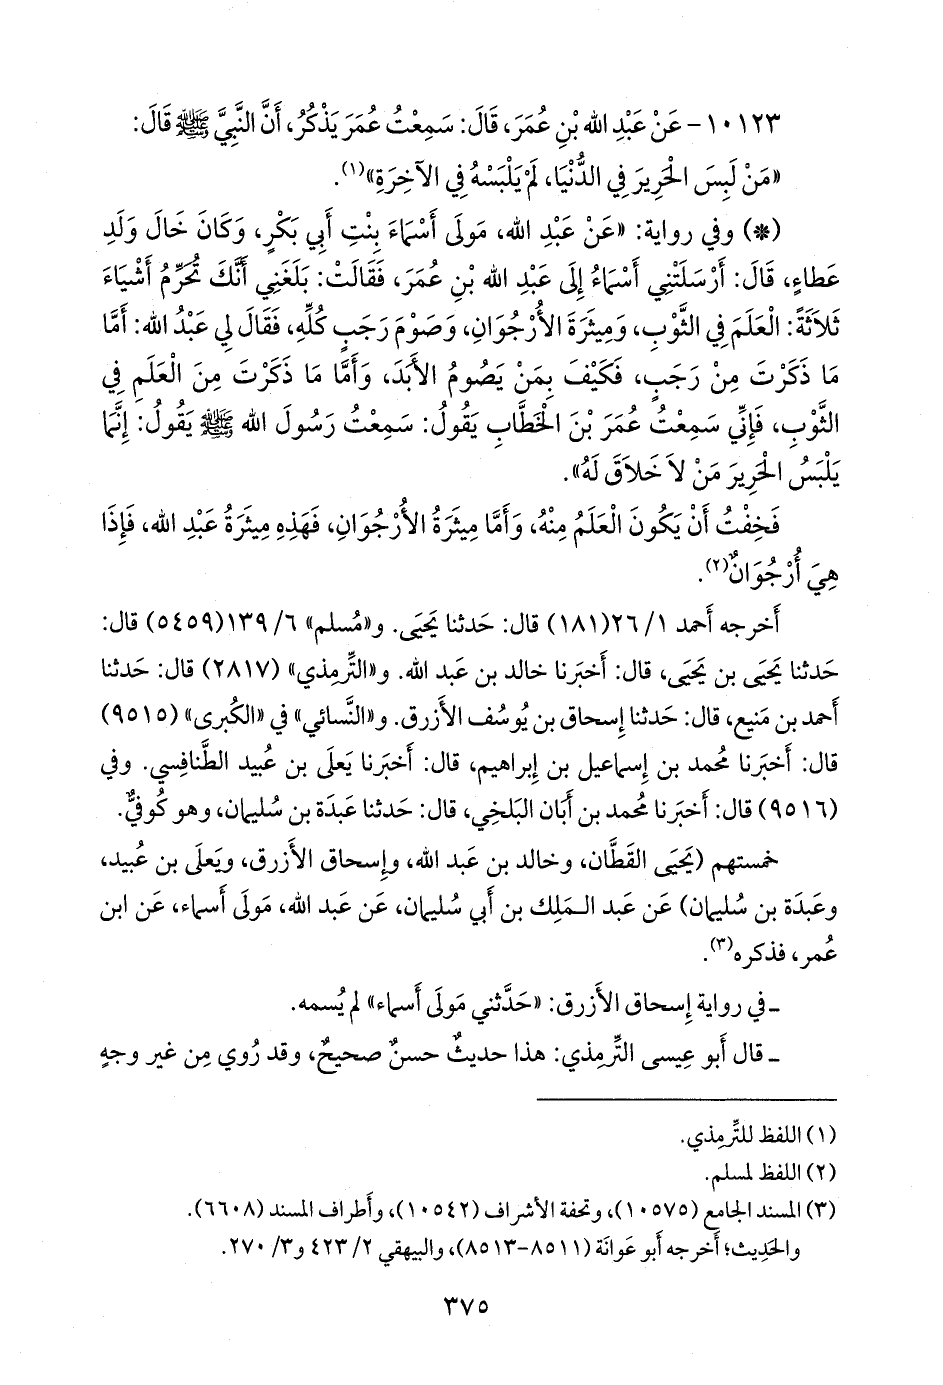 ١٠١٢٣- عَنْ عَبْدِ الله بْنِ عُمَرَ، قَالَ: سَمِعْتُ عُمَرَ يَذْكُرُ، أَنَّ النَّبِيَّ ﷺ قَالَ:
«مَنْ لَبِسَ الْحَرِيرَ فِي الدُّنْيَا، لَمْ يَلْبَسْهُ فِي الآخِرَةِ»(١).
(*) وفي رواية: «عَنْ عَبْدِ الله، مَولَى أَسْمَاءَ بِنْتِ أَبِي بَكْرٍ، وَكَانَ خَالَ وَلَدِ
عَطَاءٍ، قَالَ: أَرْسَلَتْنِي أَسْمَاءُ إِلَى عَبْدِ الله بْنِ عُمَرَ، فَقَالَتْ: بَلَغَنِي أَنَّكَ تُحَرِّمُ أَشْيَاءَ
ثَلاَثَةً: الْعَلَمَ فِي الثَّوْبِ، وَمِيثَرَةَ الأُرْجُوَانِ، وَصَوْمَ رَجَبٍ كُلِّهِ، فَقَالَ لِي عَبْدُ الله: أَمَّا
مَا ذَكَرْتَ مِنْ رَجَبٍ، فَكَيْفَ بِمَنْ يَصُومُ الأَبَدَ، وَأَمَّا مَا ذَكَرْتَ مِنَ الْعَلَمِ فِي
الثَّوْبِ، فَإِنِّي سَمِعْتُ عُمَرَ بْنَ الْخَطَّابِ يَقُولُ: سَمِعْتُ رَسُولَ الله ﷺ يَقُولُ: إِنَّمَا
يَلْبَسُ الْحَرِيرَ مَنْ لاَ خَلاَقَ لَهُ».
فَخِفْتُ أَنْ يَكُونَ الْعَلَمُ مِنْهُ، وَأَمَّا مِيثَرَةُ الأُرْجُوَانِ، فَهَذِهِ مِيثَرَةُ عَبْدِ الله، فَإِذَا
هِيَ أُرْجُوَانٌ(٢).
أَخرجه أَحمد ١/ ٢٦(١٨١) قال: حَدثنا يَحيَى. و«مُسلم» ٦/ ١٣٩(٥٤٥٩) قال:
حَدثنا يَحيَى بن يَحيَى، قال: أَخبَرنا خالد بن عَبد الله. و«التِّرمِذي» (٢٨١٧) قال: حَدثنا
أَحمد بن مَنيع، قال: حَدثنا إِسحاق بن يُوسُف الأَزرق. و«النَّسائي» في «الكُبرى» (٩٥١٥)
قال: أَخبَرنا مُحمد بن إِسماعيل بن إِبراهيم، قال: أَخبَرنا يَعلَى بن عُبيد الطَّنافِسي. وفي
(٩٥١٦) قال: أَخبَرنا مُحمد بن أَبَان البَلخِي، قال: حَدثنا عَبدَة بن سُليمان، وهو كُوفيٌّ.
خمستهم (يَحيَى القَطَّان، وخالد بن عَبد الله، وإِسحاق الأَزرق، ويَعلَى بن عُبيد،
وعَبدَة بن سُليمان) عَن عَبد الـمَلِك بن أَبي سُليمان، عَن عَبد الله، مَولَى أَسماء، عَن ابن
عُمر، فذكره(٣).
ـ في رواية إِسحاق الأَزرق: «حَدَّثني مَولَى أَسماء» لم يُسمه.
ـ قال أَبو عِيسى التِّرمِذي: هذا حديثٌ حسنٌ صحيحٌ، وقد رُوي مِن غير وجهٍ
(١) اللفظ للتِّرمِذي.
(٢) اللفظ لمسلم.
(٣) المسند الجامع (١٠٥٧٥)، وتحفة الأشراف (١٠٥٤٢)، وأَطراف المسند (٦٦٠٨).
والحَدِيث؛ أَخرجه أَبو عَوانَة (٨٥١١-٨٥١٣)، والبيهقي ٢/ ٤٢٣ و٣/ ٢٧٠.
٣٧٥